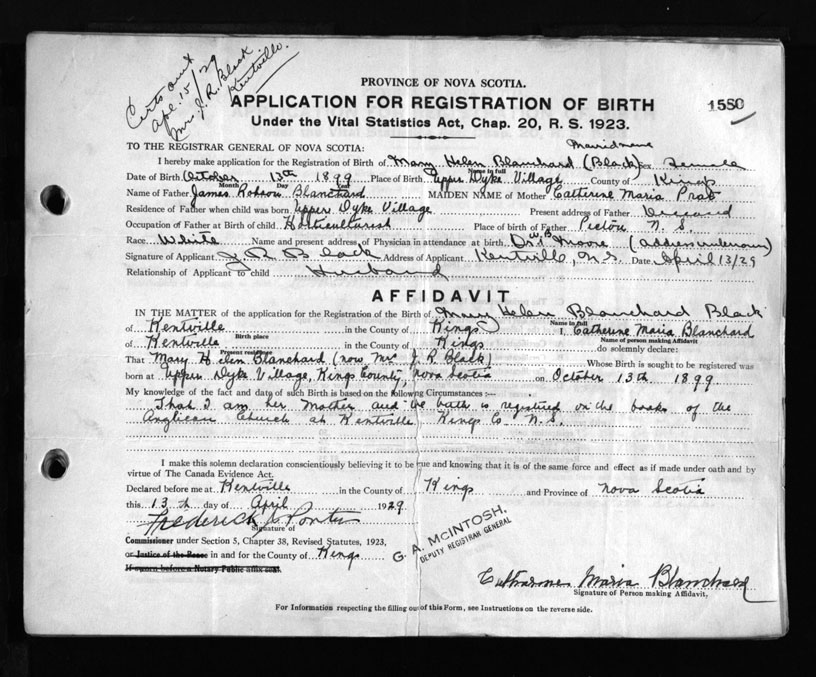 Certs out
Apl. 15/29
Mrs. J. R. Black
Kentville.
PROVINCE OF NOVA SCOTIA.
APPLICATION FOR REGISTRATION OF BIRTH
1550
Under the Vital Statistics Act, Chap. 20, R. S. 1923.
TO THE REGISTRAR GENERAL OF NOVA SCOTIA:
I hereby make application for the Registration of Birth of Mary Helen Blanchard (Black) Sex Female
Name in full
Date of Birth October 13th 1899 Place of Birth Upper Dyke Village County of Kings
Month Day Year
Name of Father James Robson Blanchard MAIDEN NAME of Mother Catherine Maria
Residence of Father when child was born Upper Dyke Village Present address of Father Deceased
Occupation of Father at Birth of child Horticulturist Place of birth of Father Pictou N. S.
Race White Name and present address of Physician in attendance at birth Dr. W. B. Moore (address unknown)
Signature of Applicant J. R. Black Address of Applicant Kentville, N.S. Date April 13/29
Relationship of Applicant to child Husband
AFFIDAVIT
IN THE MATTER of the application for the Registration of the Birth of Mary Helen Blanchard Black
Name in full
of Kentville in the County of Kings I, Catherine Maria Blanchard
Birth place Name of person making Affidavit
of Kentville in the County of Kings do solemnly declare:
Present residence
That Mary Helen Blanchard (now Mrs J. R. Black) Whose Birth is sought to be registered was
born at Upper Dyke Village, Kings County, Nova Scotia on October 13th 1899
My knowledge of the fact and date of such Birth is based on the following Circumstances :—
That I am her Mother and the birth is registered on the books of the
Anglican Church at Kentville Kings Co N. S.
I make this solemn declaration conscientiously believing it to be true and knowing that it is of the same force and effect as if made under oath and by
virtue of The Canada Evidence Act.
Declared before me at Kentville in the County of Kings and Province of Nova Scotia
this 13th day of April 1929
Frederick C Porter
Signature of
Commissioner under Section 5, Chapter 38, Revised Statutes, 1923,
or Justice of the Peace in and for the County of Kings
If sworn before a Notary Public affix seal.
G. A. McINTOSH,
DEPUTY REGISTRAR GENERAL
Catharine Maria Blanchard
Signature of Person making Affidavit,
For Information respecting the filling out of this Form, see Instructions on the reverse side.